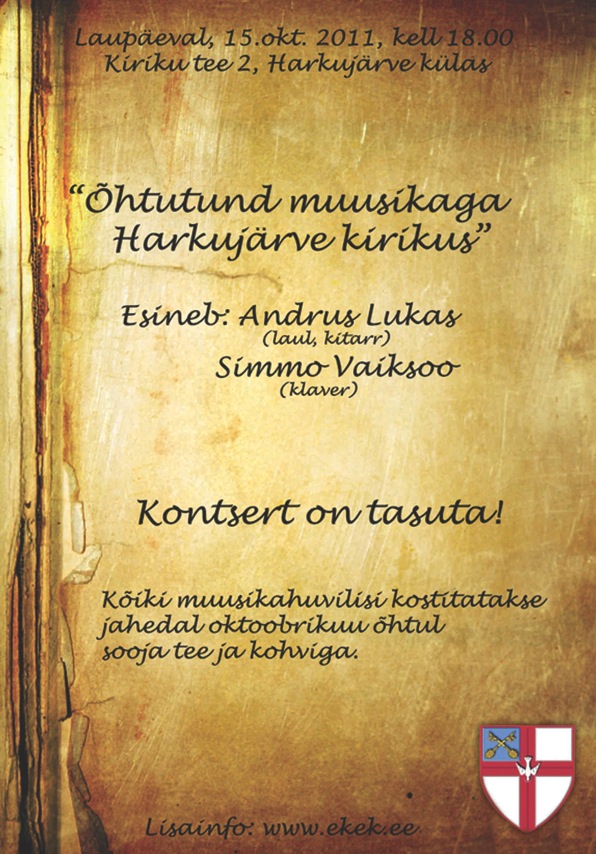 Laupäeval, 15.okt. 2011, kell 18.00
Kiriku tee 2, Harkujärve külas
“Õhtutund muusikaga
Harkujärve kirikus”
Esineb: Andrus Lukas
(laul, kitarr)
Simmo Vaiksoo
(klaver)
Kontsert on tasuta!
Kõiki muusikahuvilisi kostitatakse
jahedal oktoobrikuu õhtul
sooja tee ja kohviga.
Lisainfo: www.ekek.ee